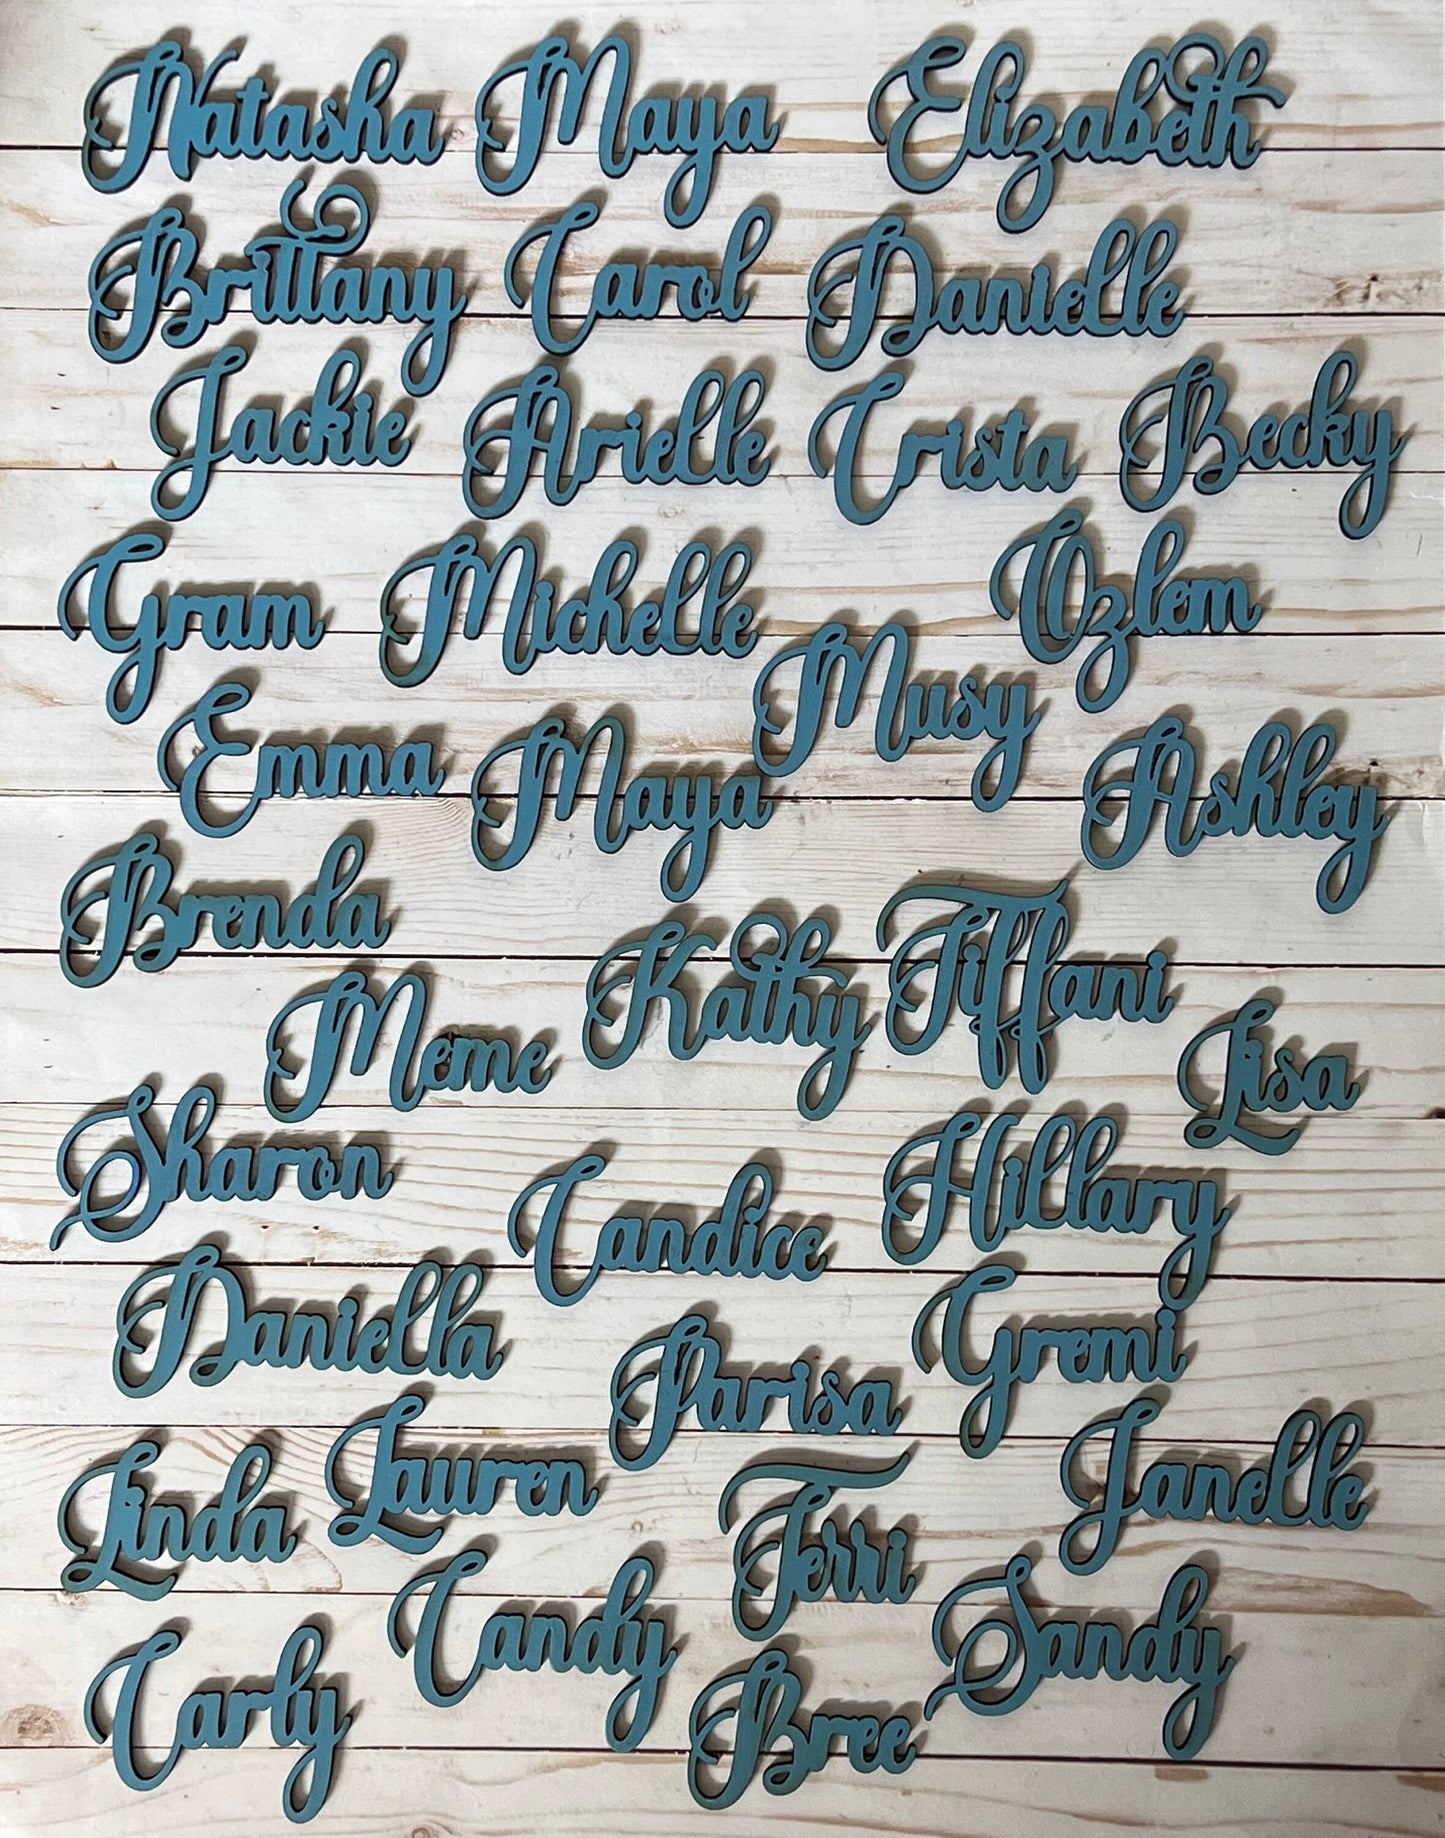 Natasha Maya Elizabeth
Brittany Carol Danielle
Jackie Arielle Crista Becky
Gram Michelle Ozlem
Emma Maya Musy Ashley
Brenda Kathy Tiffani
Meme Lisa
Sharon Candice Hillary
Daniella Parisa Gremi
Linda Lauren Terri Janelle
Carly Candy Bree Sandy